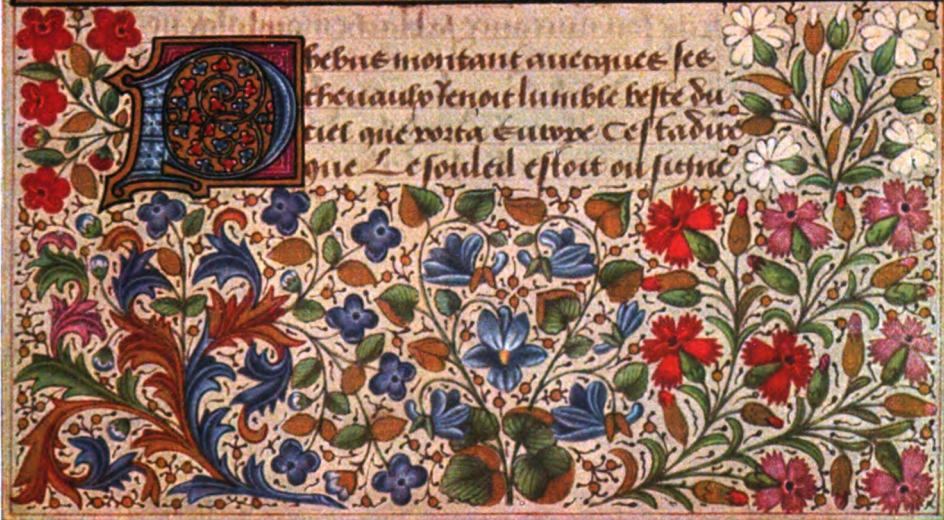 Phebus montant auecques ses
cheuaulx lumble beste du
ciel que porta Europe Cestadire
que Le souleil estoit ou signe